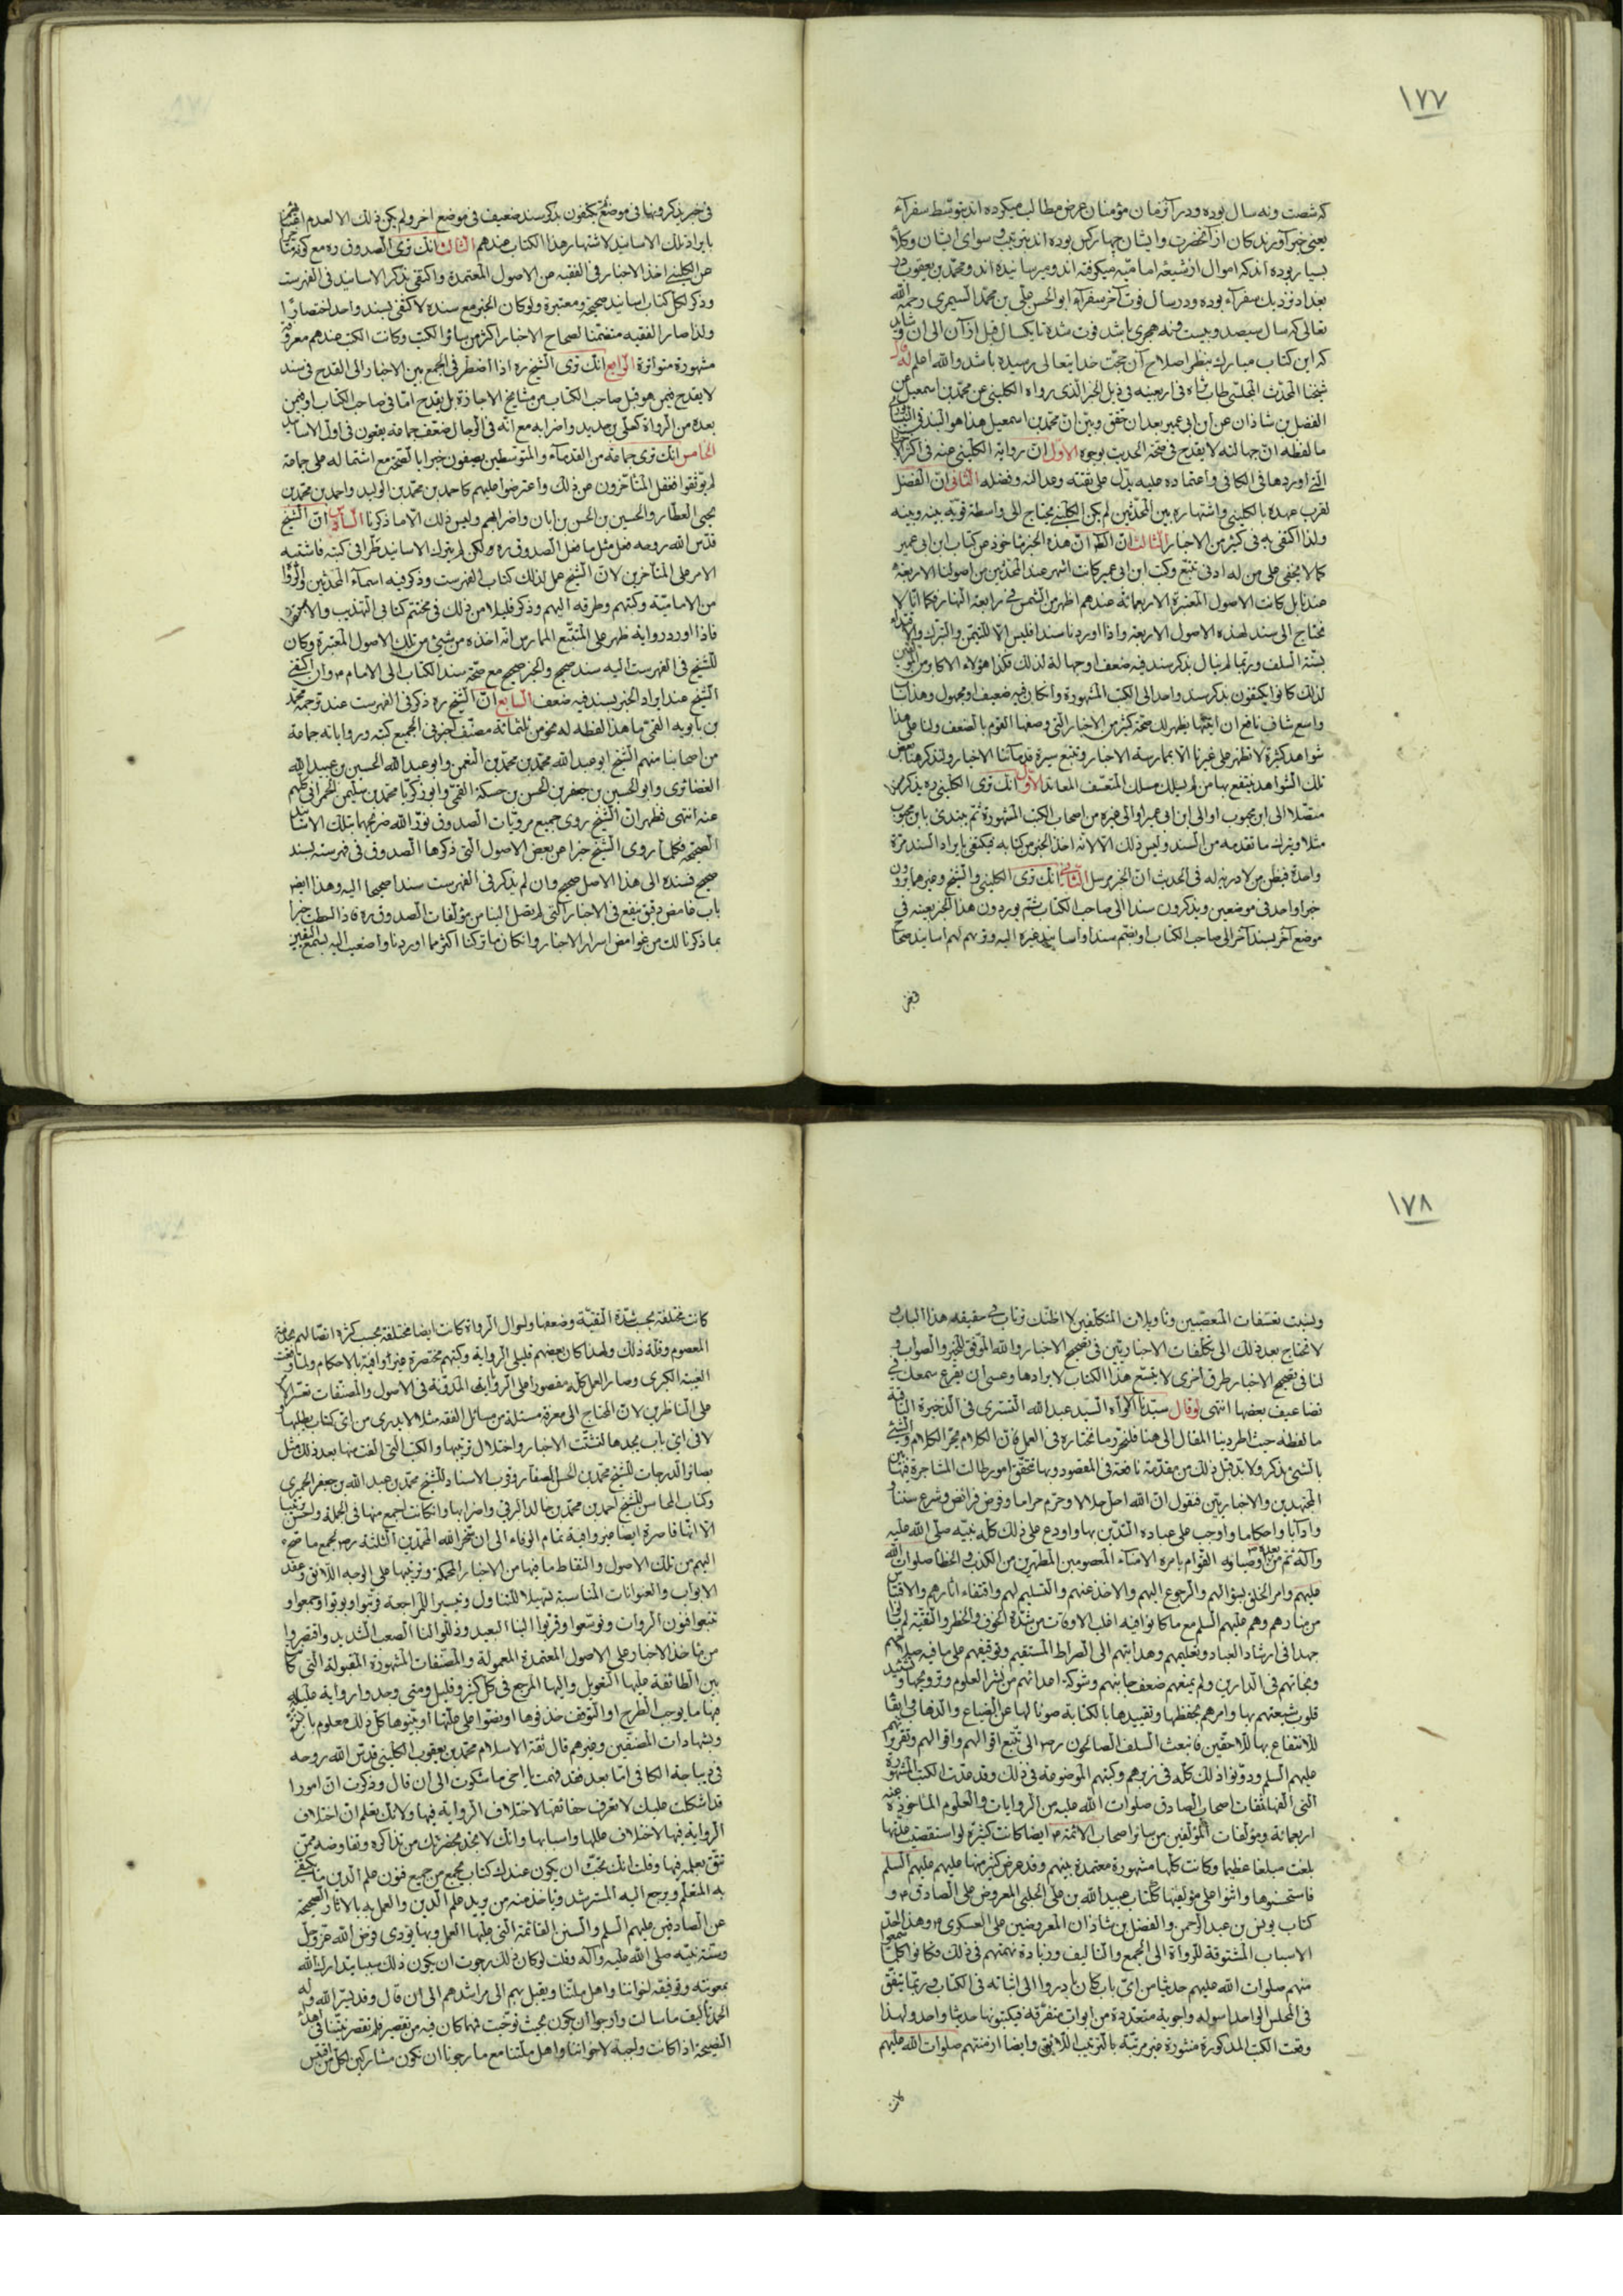 ١٧٧
که شصت ونه سال بوده ودر آن زمان مؤمنان عرض مطالب میکرده اند بتوسط سفرآء
یعنی خبر آورندکان از آنحضرت وایشان چهار کس بوده اند بترتیب وسوای ایشان وکلآء
بسیار بوده اند که اموال از شیعۀ امامیّه میکرفته اند ومیرسانیده اند ومحمّد بن یعقوب در
بغداد نزدیک سفرآء بوده ودر سال فوت آخر سفرآء ابو الحسن علی بن محمّد السیمری رحمه الله
تعالی که سال سیصد وبیست ونه هجری باشد فوت شده تا یکسال قبل از آن الی ان وشاید
که این کتاب مبارک بنظر اصلاح آن حجّت خدایتعالی رسیده باشد والله اعلم وقال
شیخنا المحدّث المجلسی طاب ثراه فی اربعینه فی ذیل الخبر الذی رواه الکلینی عن محمّد بن اسمعیل عن
الفضل بن شاذان عن ابن ابی عمیر بعد ان حقق وبیّن انّ محمّد بن اسمعیل هذا هو البندفی
ما لفظه انّ جهالته لا یقدح فی صحّة الحدیث بوجوه الاوّل انّ روایة الکلینی عنه فی اکثر الا
الّتی اوردها فی الکافی واعتماده علیه یدلّ علی ثقته وعدالته وفضله الثانی انّ الفضل
لقرب عهده بالکلینی واشتهاره بین المحدّثین لم یکن الکلینی یحتاج الی واسطة قویّة بینه وبینه
ولذا اکتفی به فی کثیر من الاخبار الثالث انّ الظّ انّ هذه الخبر مأخوذ من کتاب ابن ابی عمیر
کما لا یخفی علی من له ادنی تتبّع وکتب ابن ابی عمیر کانت اشهر عند المحدّثین من اصولنا الاربعة
عندنا بل کانت الاصول المعتبرة الاربعمائة عندهم اظهر من الشّمس فی رابعة النهار فکما انّا لا
نحتاج الی سند لهذه الاصول الاربعة واذا اوردنا سندا فلیس الّا للتیمّن والتبرّک والاقتداء
بسنّة السلف وربّما لم ینال بذکر سند فیه ضعف او جهالة لذلک فکذا هؤلاء الاکابر من المؤلفین
لذلک کانوا یکتفون بذکر سند واحد الی الکتب المشهورة وان کان فیه ضعیف او مجهول وهذا باب
واسع شاف نافع ان اتیتها یظهر لک صحّة کثیر من الاخبار الّتی وصفها القوم بالضّعف ولنا علی هذا
شواهد کثیرة لا تظهر علی غیرنا الا بممارسة الاخبار وتتبع سیرة قدمآئنا الاخیار ولنذکر هنا بعض
تلک الشّواهد ینتفع بها من لم یسلک مسلک المتعسّف المعاند الاوّل انّک تری الکلینی ره یذکر
متّصلا الی ابن محبوب او الی ابن ابی عمیر او الی غیره من اصحاب الکتب المشهورة ثمّ یبتدئ بابن محبوب
مثلا ویترک ما تقدمه من السند ولیس ذلک الّا لانّه اخذ الخبر من کتابه فیکتفی بایراد السند مرّة
واحدة فیظن من لا دریة له فی الحدیث انّ الخبر مرسل الثانی انّک تری الکلینی والشیخ وغیرهما یروون
خبرا واحدا فی موضعین ویذکرون سندا الی صاحب الکتاب ثمّ یوردون هذا الخبر بعینه فی
موضع آخر بسند آخر الی صاحب الکتاب او یضمّ سندا او اسانید غیره الیه وتریهم لهم اسانید صحاح
فی خبر یذکرونها فی موضع ثمّ یکتفون بذکر سند ضعیف فی موضع اخر ولم یکن ذلک الا لعدم اعتنائهم
بایراد تلک الاسانید لاشتهار هذا الکتاب عندهم الثالث انّک تری الصّدوق ره مع کونه متاخّرا
عن الکلینی اخذ الاخبار فی الفقیه من الاصول المعتمدة واکتفی بذکر الاسانید فی الفهرست
وذکر لکل کتاب اسانید صحیحة ومعتبرة ولو کان الخبر مع سنده لاکتفی بسند واحد اختصارًا
ولذا صار الفقیه متضمّنا لصحاح الاخبار اکثر من سائر الکتب وکانت الکتب عندهم معروفة
مشهورة متواترة الرّابع انّک تری الشیخ ره اذا اضطرّ فی الجمع بین الاخبار الی القدح فی سند
لا یقدح فیمن هو قبل صاحب الکتاب من مشایخ الاجازة بل یقدح امّا فی صاحب الکتاب او فیمن
بعده من الرّواة کعلی بن حدید واضرابه مع انّه فی الرّجال ضعّف جماعة یقعون فی اوّل الاسانید
الخامس انّک تری جماعة من القدمآء والمتوسّطین یصفون خبرا بالصّحة مع اشتماله علی جماعة
لم یوثّقوا فغفل المتأخّرون عن ذلک واعترضوا علیهم کاحمد بن محمّد بن الولید واحمد بن محمّد بن
یحیی العطّار والحسین بن الحسن بن ابان واضرابهم ولیس ذلک الّا ما ذکرنا السّادس انّ الشیخ
قدّس الله روحه فعل مثل ما فعل الصدوق ره ولکن لم یترک الاسانید طرًا فی کتبه فاشتبه
الامر علی المتأخرین لانّ الشیخ عمل لذلک کتاب الفهرست وذکر فیه اسمآء المحدّثین والرّواة
من الامامیّة وکتبهم وطرقه الیهم وذکر قلیلا من ذلک فی مختتم کتابی التهذیب والاستبصار
فاذا اورد روایة ظهر علی المتتبّع الممارس انّه اخذه من شیئ من تلک الاصول المعتبرة وکان
للشّیخ فی الفهرست الیه سند صحیح والخبر صحیح مع صحّة سند الکتاب الی الامام ع وان اکتفی
الشیخ عند ایراد الخبر بسند فیه ضعف السّابع انّ الشّیخ ره ذکر فی الفهرست عند ترجمة محمّد
بن بابویه القمی ما هذا لفظه له نحو من ثلثمائة مصنّف اخبرنی الجمیع کتبه وروایاته جماعة
من اصحابنا منهم الشیخ ابو عبد الله محمّد بن محمّد بن النعمن وابو عبد الله الحسین بن عبید الله
الغضائری وابو الحسین بن جعفر بن الحسن بن حسکة القمّی وابو زکریّا محمّد بن سلیمن الحمرانی کلّهم
عنه انتهی فظهر انّ الشّیخ روی جمیع مرویّات الصدوق نوّر الله ضریحهما بتلک الاسانید
الصحیحة فکلّما روی الشیخ خبرا من بعض الاصول الّتی ذکرها الصّدوق فی فهرسته بسند
صحیح فسنده الی هذا الاصل صحیح وان لم یذکر فی الفهرست سندا صحیحا الیه وهذا ایضا
باب غامض دقیق ینفع فی الاخبار الّتی لم یصل الینا من مؤلّفات الصدوق ره فاذا احطت خبرا
بما ذکرنا لک من غوامض اسرار الاخبار وان کان ما ترکنا اکثر مما اوردنا واصغیت الیه بسمع الیقین
١٧٨
ونسیت تعسّفات المتعصّبین وتأویلات المتکلّفین لا اظنّک ترتاب فی حقیقة هذا الباب و
لا تحتاج بعد ذلک الی تکلّفات الاخباریّین فی تصحیح الاخبار والله الموفّق للخیر والصّواب و
لنا فی تصحیح الاخبار طرق اخری لا یتّسع هذا الکتاب لایرادها وعسی ان یقرع سمعک فی
تضاعیف بعضها انتهی وقال سیّدنا الاوّاه السیّد عبد الله التستری فی الذّخیرة الباقیة
ما لفظه حیث اطرد بنا المقال الی هنا فلنحرّر ما نختاره فی العمل فانّ الکلام یجرّ الکلام والشّئ
بالشئ یذکر ولا بدّ قبل ذلک من مقدّمة نافعة فی المقصود وبها تتحقّق امور طالت المشاجرة فیها بین
المجتهدین والاخباریّین فنقول انّ الله احلّ حلالا وحرّم حراما وفرض فرائض وشرع سننا و
وآدابا واحکاما واوجب علی عباده التدیّن بها واودع علی ذلک کلّه نبیّه صلّی الله علیه
وآله ثمّ من بعده اوصیائه القوّام بامره الامناء المعصومین المطهّرین من الکذب والخطأ صلوات الله
علیهم وامر الخلق بسؤالهم والرّجوع الیهم والاخذ عنهم والتسلیم لهم واقتفاء اثارهم والاقتباس
من منارهم وهم علیهم السلم مع ما کانوا فیه اغلب الاوقات من شدّة الخوف والخطر والتّقیّة لم یألوا
جهدا فی ارشاد العباد وتعلیمهم وهدایتهم الی الصراط المستقیم وتوقیفهم علی ما فیه صلاحهم
ونجاتهم فی الدّارین ولم یمنعهم ضعف جانبهم وشوکة اعدائهم من نشر العلوم وترویجها وتشیید
قلوب شیعتهم بها وامرهم بحفظها وتقییدها بالکتابة صونا لها عن الضیاع والذهاب وابقآء
للانتفاع بها للّاحقین فانبعث السلف الصالحون رض الی تتبّع افعالهم واقوالهم وتقریراتهم
علیهم السلم ودوّنوا ذلک کلّه فی زبرهم وکتبهم الموضوعة فی ذلک وقد عدّت الکتب المشهورة
التی الّفها ثقات اصحاب الصادق صلوات الله علیه من الروایات والعلوم المأخوذة عنه
اربعمائة ومؤلّفات المؤلّفین من سائر اصحاب الائمّة ع ایضا کانت کثیرة لو استقصیت عدّتها
بلغت مبلغا عظیما وکانت کلّها مشهورة معتمدة بینهم وقد عرض کثیر منها علیهم علیهم السلم
فاستحسنوها واثنوا علی مؤلّفیها ککتاب عبید الله بن علی الحلبی المعروض علی الصادق ع و
کتاب یونس بن عبد الرحمن والفضل بن شاذان المعروضین علی العسکری ع وهذا احد
الاسباب المشوّقة للرّواة الی الجمع والتألیف وزیادة نهمتهم فی ذلک فکانوا کلّما سمعوا
منهم صلوات الله علیهم حدیثا من ایّ باب کان بادروا الی اثباته فی الکتاب وربّما یتّفق
فی المجلس الواحد اسولة واجوبة متعدّدة من ابواب متفرّقة فیکتبونها حدیثا واحدا ولهذا
وقعت الکتب المذکورة منثورة غیر مرتّبة بالترتیب اللّائق وایضا ازمنتهم صلوات الله علیهم
کانت
کانت مختلفة بحسب شدّة التقیّة وضعفها واحوال الرّواة کانت ایضا مختلفة بحسب کثرة اتصالهم بخدمة
المعصوم وقلّة ذلک ولهذا کان بعضهم قلیلی الروایة وکتبهم مختصرة غیر وافیة بالاحکام ولمّا وقعت
الغیبة الکبری وصار العمل کلّه مقصورا علی الروایات المدوّنة فی الاصول والمصنّفات تعسّر الامر
علی الناظرین لانّ المحتاج الی معرفة مسئلة من مسائل الفقه مثلا لا یدری من ایّ کتاب یطلبها و
لا فی ایّ باب یجدها لتشتّت الاخبار واختلال ترتیبها والکتب الّتی الّفت بعد ذلک مثل
بصائر الدّرجات للشیخ محمّد بن الحسن الصفّار وقرب الاسناد للشیخ محمّد بن عبد الله بن جعفر الحمیری
وکتاب المحاسن للشّیخ احمد بن محمّد بن خالد البرقی واضرابها وان کانت اجمع منها فی الجملة واحسن ترتیبا
الّا انّها قاصرة ایضا غیر وافیة تمام الوفاء الی ان سخّر الله المحمّدین الثلثة رض لجمع ما صحّ
الیهم من تلک الاصول والتقاط ما فیها من الاخبار المحکمة وترتیبها علی الوجه اللّائق وعقد
الابواب والعنوانات المناسبة تسهیلا للتناول وتیسیرا للمراجعة فرتّبوا وبوّبوا وجمعوا و
تتبعوا فنون الروایات ونوّسعوا وقرّبوا الینا البعید وذلّلوا لنا الصعب الشدید واقتصروا
من مآخذ الاخبار علی الاصول المعتمدة المعمولة والمصنّفات المشهورة المقبولة التی کان
بین الطائفة علیها التعویل والیها المرجع فی کل کثیر وقلیل ومتی وجدوا روایة علیلة
فیها ما یوجب الطرح او التوقف حذفوها او نصّوا علی علّتها او بیّنوها کلّ ذلک معلوم بالتتبع
وبشهادات المصنّفین وغیرهم قال ثقة الاسلام محمّد بن یعقوب الکلینی قدّس الله روحه
فی دیباجة الکافی امّا بعد فقد فهمت یا اخی ما شکوت الی ان قال وذکرت انّ امورا
قد اشکلت علیک لا تعرف حقائقها لاختلاف الروایة فیها وانّک تعلم انّ اختلاف
الروایة فیها لاختلاف عللها واسبابها وانّک لا تجد بحضرتک من تذاکره وتفاوضه ممّن
تثق بعلمه فیها وقلت انّک تحبّ ان یکون عندک کتاب یجمع من جمیع فنون علم الدین ما یکتفی
به المتعلّم ویرجع الیه المسترشد ویأخذ منه من یرید علم الدّین والعمل به بالآثار الصحیحة
عن الصادقین علیهم السلم والسنن القائمة التی علیها العمل وبها یؤدی فرض الله عزّ وجلّ
وسنّة نبیّه صلی الله علیه وآله وقلت لو کان ذلک رجوت ان یکون ذلک سببا یتدارک الله
بمعونته وتوفیقه اخواننا واهل ملّتنا ویقبل بهم الی مراشدهم الی ان قال وقد یسّر الله وله
الحمد تألیف ما سالت وارجو ان یکون بحیث توخّیت فمهما کان فیه من تقصیر فلم تقصر نیّتنا فی اهداء
النصیحة اذا کانت واجبة لاخواننا واهل ملّتنا مع ما رجونا ان نکون مشارکین لکل من اقتبس